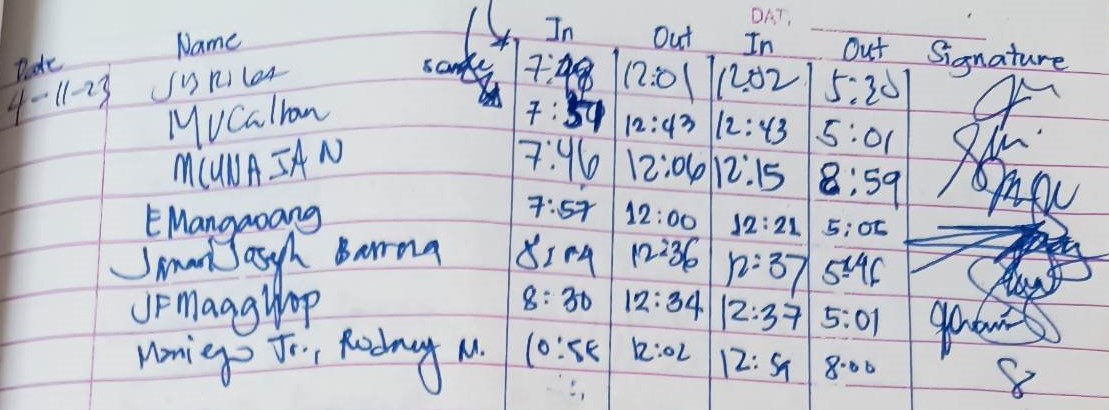 DAT.
Date Name In Out In Out Signature
4-11-23 7:48 12:01 12:02 5:30
MVCalhan 7:59 12:43 12:43 5:01
MCUNAJAN 7:46 12:06 12:15 8:59
EMangaoang 7:57 12:00 12:21 5:05
Joseph Barrona 12:36 12:37 5:46
JFMagghop 8:30 12:34 12:37 5:01
Moniego Jr., Rodney M. 10:58 12:02 12:59 8:00